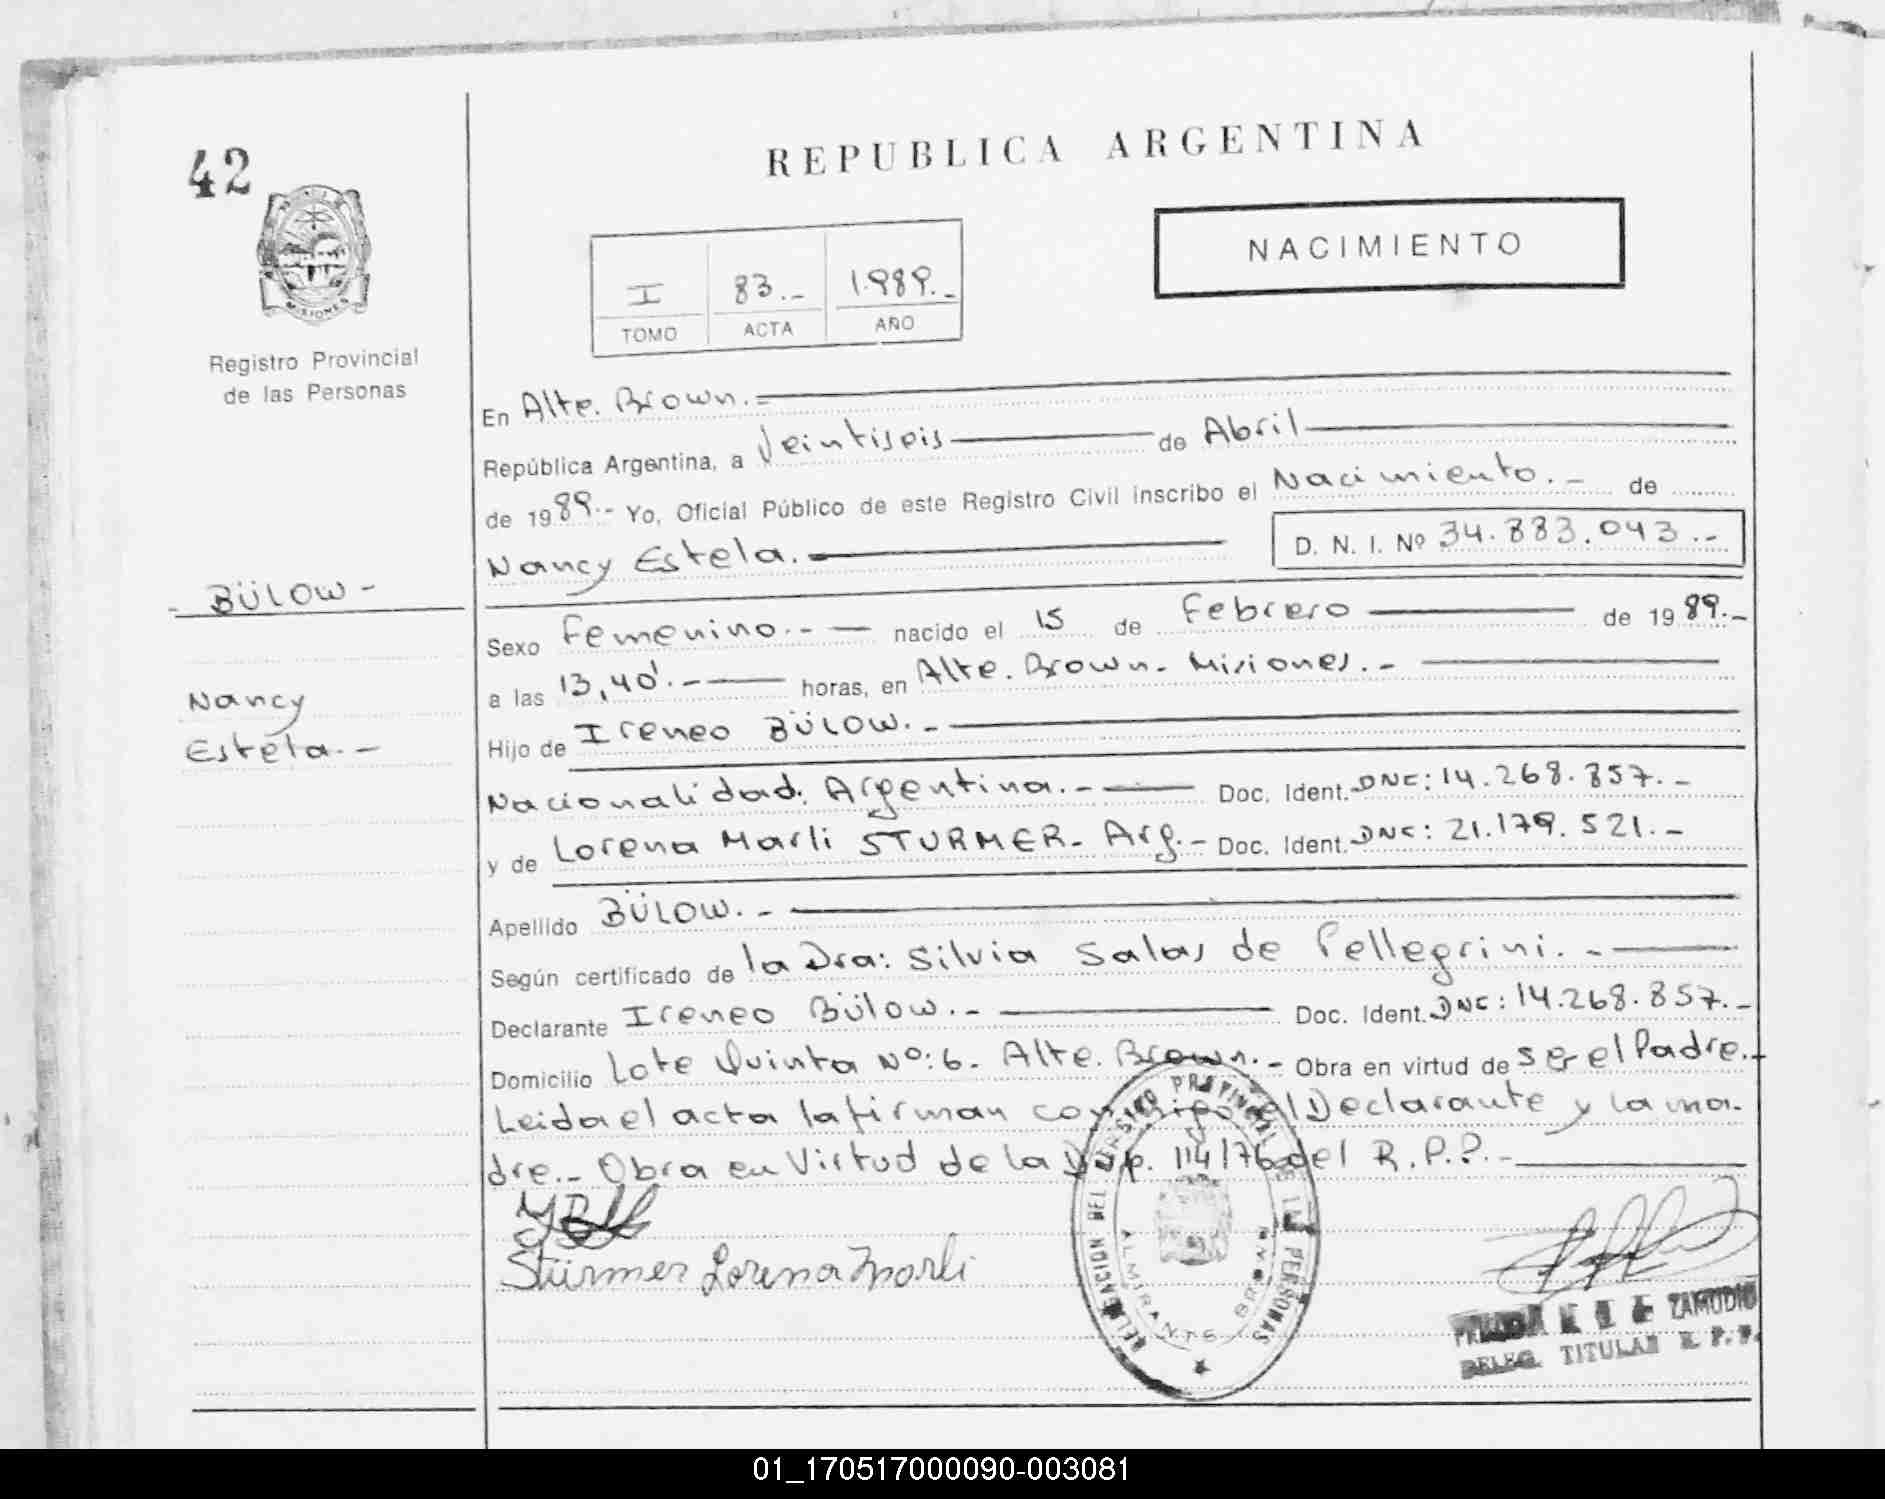 42
REPUBLICA ARGENTINA
NACIMIENTO
I 83.- 1.989.-
TOMO ACTA AÑO
MISIONES
Registro Provincial
de las Personas
En Alte. Brown.=
República Argentina, a Veintiseis de Abril
de 1989.- Yo, Oficial Público de este Registro Civil inscribo el Nacimiento.- de
Nancy Estela. D. N. I. Nº 34.883.043.-
- BÜLOW -
Sexo Femenino.- nacido el 15 de Febrero de 1989.-
Nancy
Estela.-
a las 13,40'.- horas, en Alte. Brown- Misiones.-
Hijo de Ireneo BÜLOW.-
Nacionalidad: Argentina.- Doc. Ident. DNI: 14.268.857.-
y de Lorena Marli STURMER- Arg.- Doc. Ident. DNI: 21.179.521.-
Apellido BÜLOW.-
Según certificado de la Dra: Silvia Salas de Pellegrini.-
Declarante Ireneo Bülow.- Doc. Ident. DNI: 14.268.857.-
Domicilio Lote Quinta Nº:6- Alte. Brown.- Obra en virtud de ser el Padre.-
Leida el acta la firman conmigo el Declarante y la ma-
dre.- Obra en Virtud de la Disp. 114/76 del R.P.P.-
Stürmer Lorena Marli
DELEGACION DEL REGISTRO PROVINCIAL DE LAS PERSONAS
ALMIRANTE BROWN
ZAMUDIO
DELEG. TITULAR R. P. P.
01_170517000090-003081